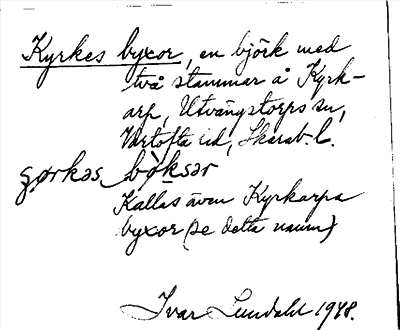 Kyrkes byxor, en björk med
två stammar å Kyrk-
arp, Utvängstorps sn,
Vartofta hd, Skarab. l.
gørkəs bøksər
Kallas även Kyrkarpa
byxor (se detta namn)
Ivar Lundahl 1948.